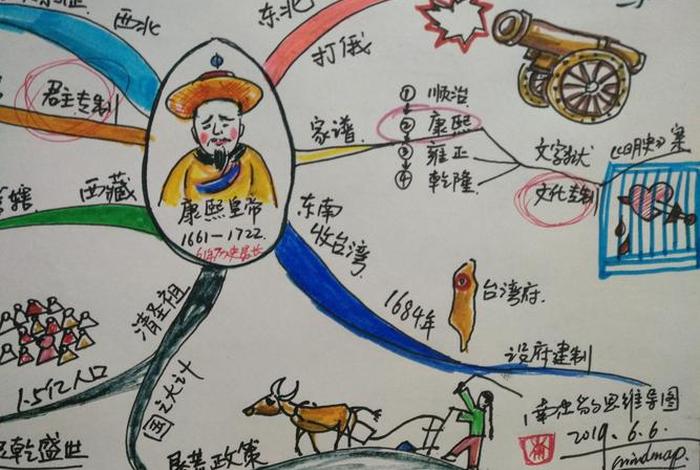 西北
东北
打俄
君主专制
家谱
① 顺治
② 康熙
③ 雍正
④ 乾隆
文字狱
文化专制
西藏
康熙皇帝
1661-1722.
61年历史最长
东南
收台湾
1684年
台湾府.
设府建制
清圣祖
1.5亿人口
国之大计
乾盛世
政策
思维导图
2019.6.6.
mindmap.